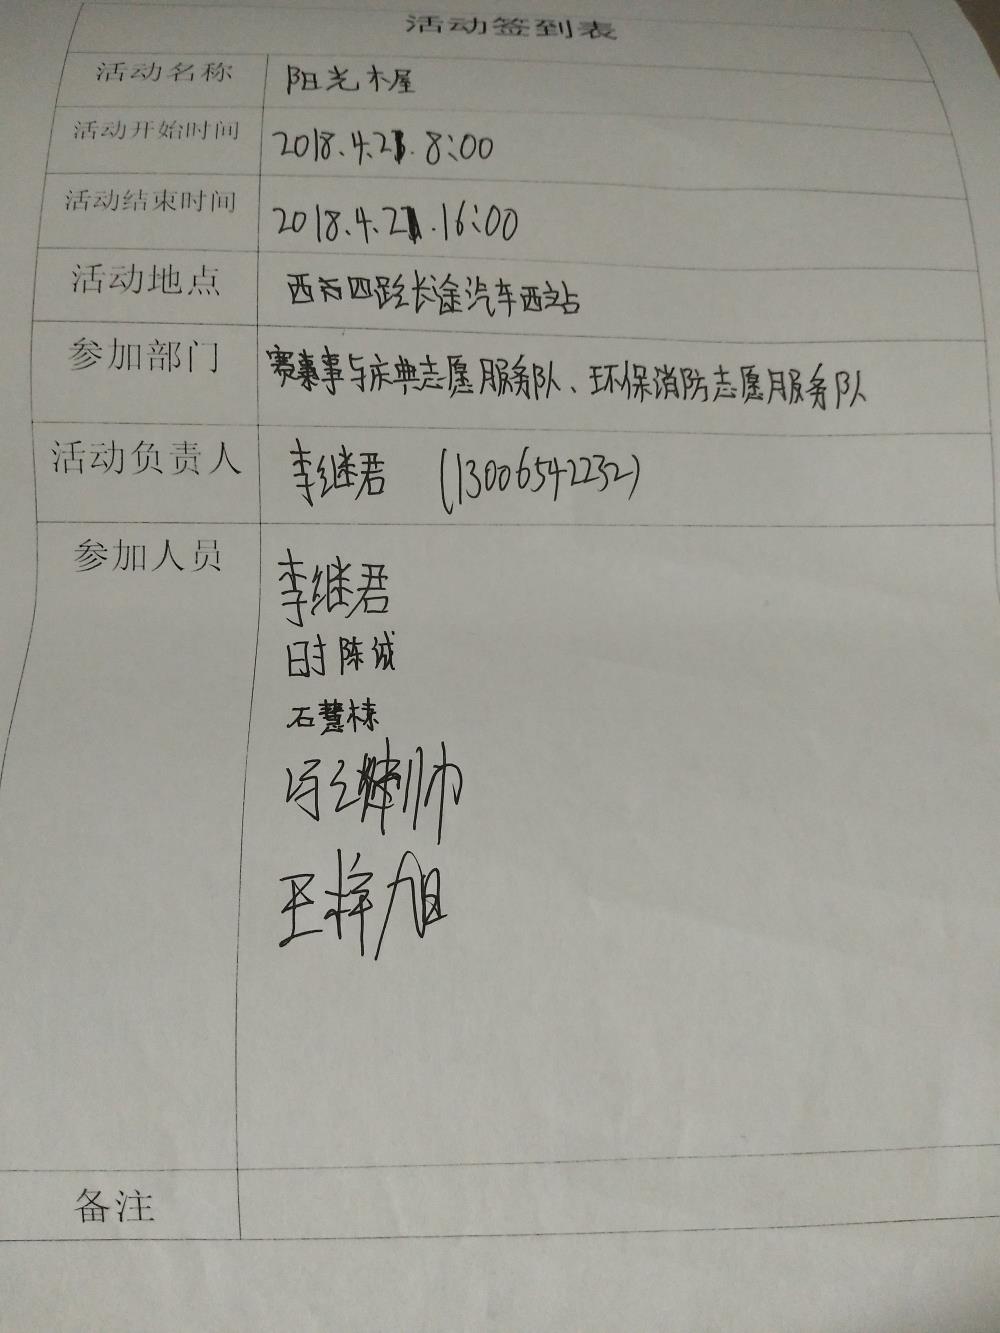 活动签到表
活动名称 阳光木屋
活动开始时间 2018.4.21. 8:00
活动结束时间 2018.4.21. 16:00
活动地点 西四路长途汽车西站
参加部门 赛事与庆典志愿服务队、环保消防志愿服务队
活动负责人 李继君 (13006542232)
参加人员 李继君
时陈诚
石慧栋
冯继帅
王梓旭
备注